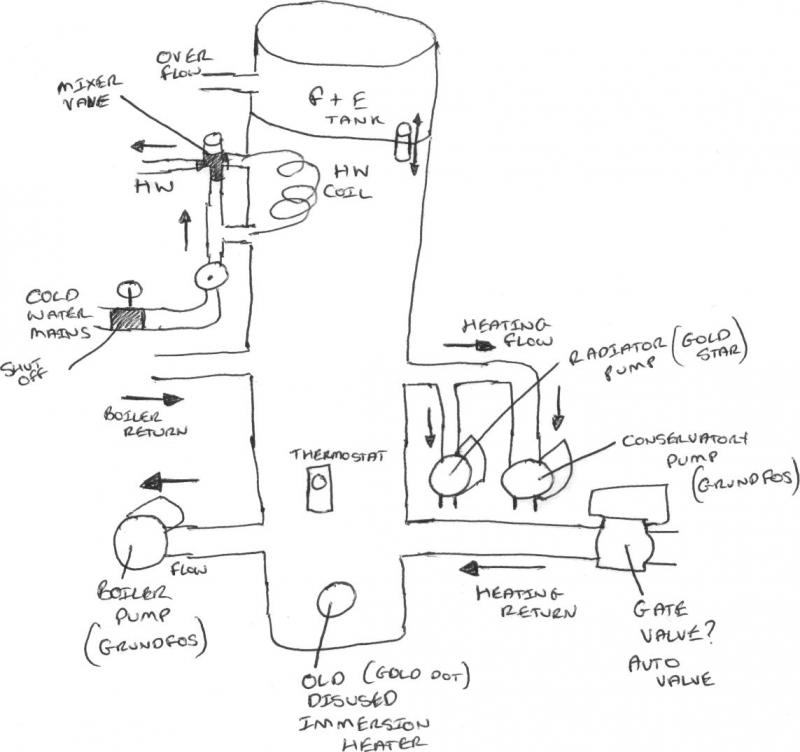 OVER
FLOW
MIXER
VAVE
F + E
TANK
HW
HW
COIL
COLD
WATER
MAINS
SHUT
OFF
HEATING
FLOW
RADIATOR (GOLD
PUMP STAR)
BOILER
RETURN
THERMOSTAT
CONSERVATORY
PUMP
(GRUNDFOS)
FLOW
BOILER
PUMP
(GRUNDFOS)
HEATING
RETURN
GATE
VALVE?
AUTO
VALVE
OLD (GOLD DOT)
DISUSED
IMMERSION
HEATER